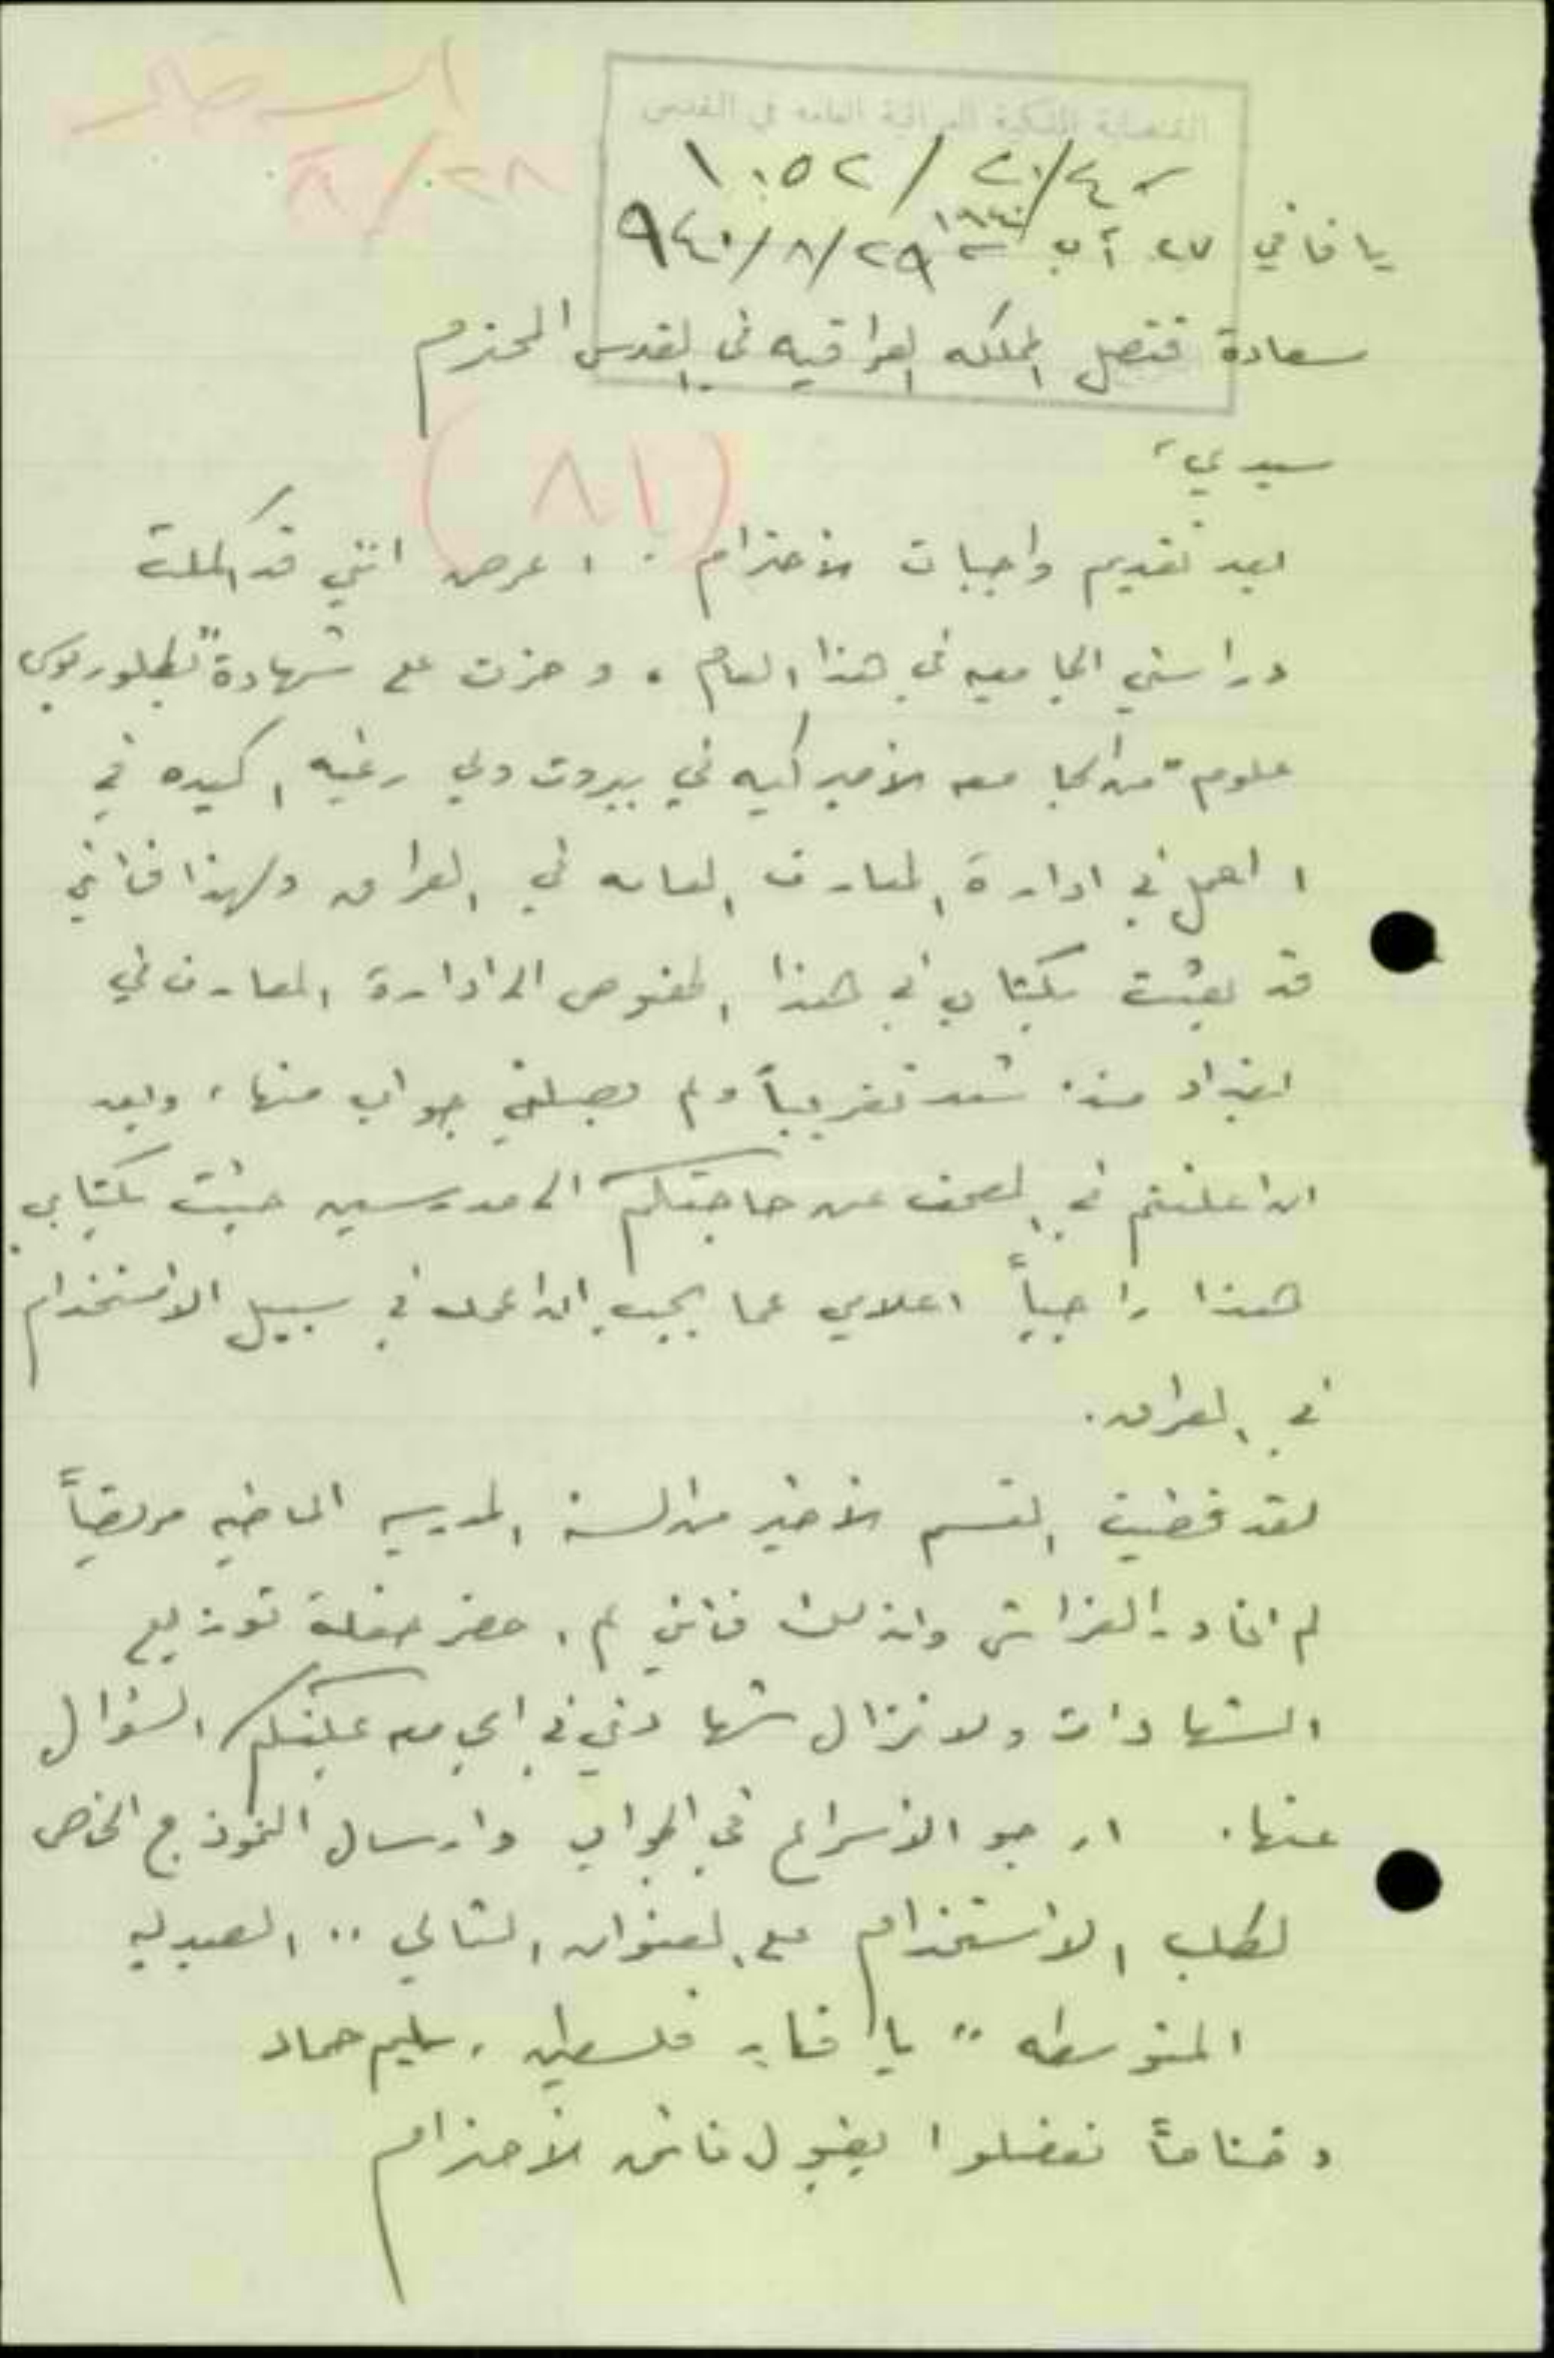 القنصلية الملكية العراقية العامة في القدس
٢٨/٨
١٠٥٢/٢٠/٤
٩٤٠/٨/٢٩
يافا في ٢٧ آب سنة ١٩٤٠
سعادة قنصل المملكه العراقيه في القدس المحترم
(٨١)
سيدي،
بعد تقديم واجبات الأحترام . اعرض انني قد اكملت
دراستي الجامعيه في هذا العام . وحزت على شهادة "بكلوريوس
علوم" من الجامعه الأميركيه في بيروت ولي رغبه اكيده في
العمل في ادارة المعارف العامه في العراق ولهذا فانني
قد بعثت بكتاب في هذا الخصوص الى ادارة المعارف في
بغداد منذ شهر تقريباً ولم يصلني جواب منها، وبعد
ان اعلنتم في الصحف عن حاجتكم الى مدرسين جئت بكتابي
هذا راجياً اعلامي عما يجب ان اعمله في سبيل الأستخدام
في العراق.
لقد قضيت القسم الأخير من السنة المدرسيه الماضيه مريضاً
لم اغادر الفراش ولذلك فانني لم احضر حفلة توزيع
الشهادات ولا تزال شهادتي في الجامعه يمكنكم السؤال
عنها. ارجو الأسراع في الجواب وارسال النموذج الخاص
لطلب الأستخدام على العنوان التالي "الصيدليه
المتوسطه" يافا فلسطين، سليم حماد
وختاماً تفضلوا بقبول فائق الأحترام